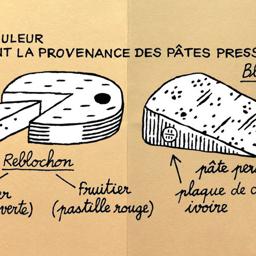 ULEUR
NT LA PROVENANCE DES PÂTES PRESS
Bl
Reblochon
er
verte)
fruitier
(pastille rouge)
pâte per
plaque de c
ivoire